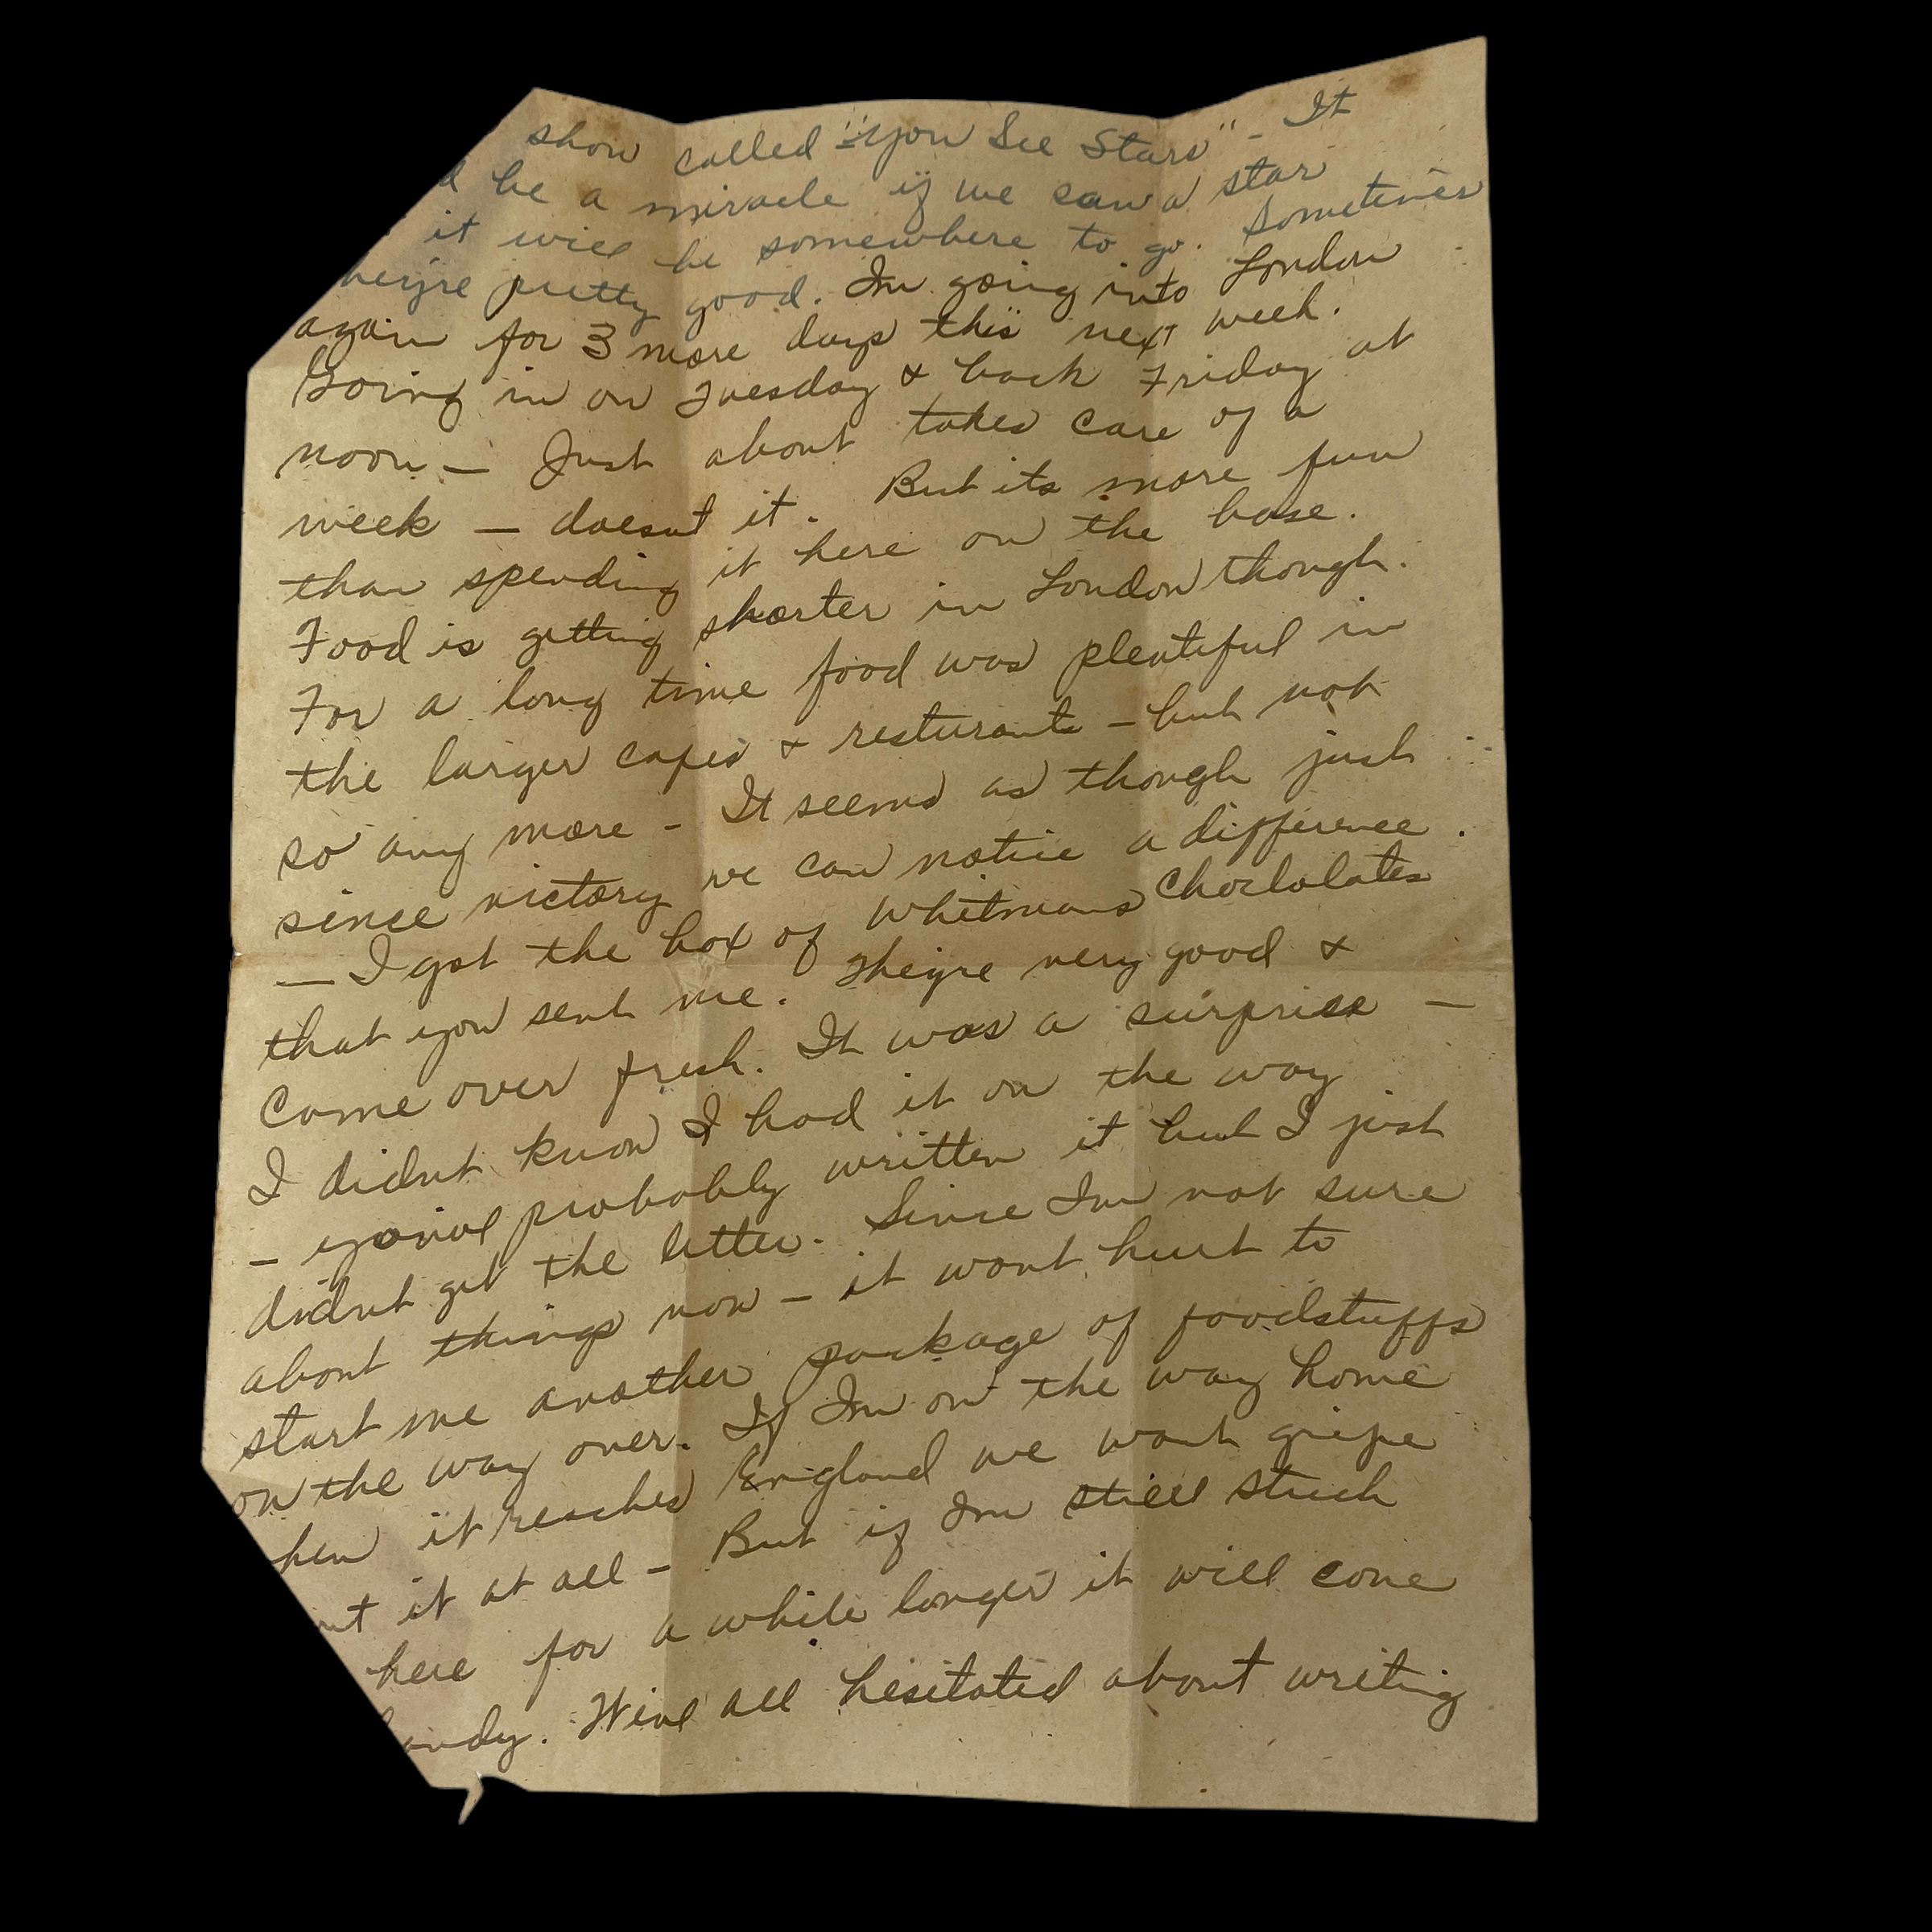 show called "You See Stars" - It
d be a miracle if we saw a star
it will be somewhere to go. Sometimes
hey're pretty good. Im going into London
again for 3 more days this next week.
Going in on Tuesday & back Friday at
noon — Just about takes care of a
week — doesnt it. But its more fun
than spending it here on the base.
Food is getting shorter in London though.
For a long time food was plentiful in
the larger cafes & resturants - but not
so any more - It seems as though just
since victory we can notice a difference.
— I got the box of Whitmans Choclolates
that you sent me. Theyre very good &
Came over fresh. It was a surprise —
I didnt know I had it on the way
- youve probably written it but I just
didnt get the letter. Since Im not sure
about things now - it wont hurt to
start me another package of foodstuffs
on the way over. If Im on the way home
hen it reaches England we wont gripe
ut it at all - But if Im still stuck
here for a while longer it will come
andy. Weve all hesitated about writing